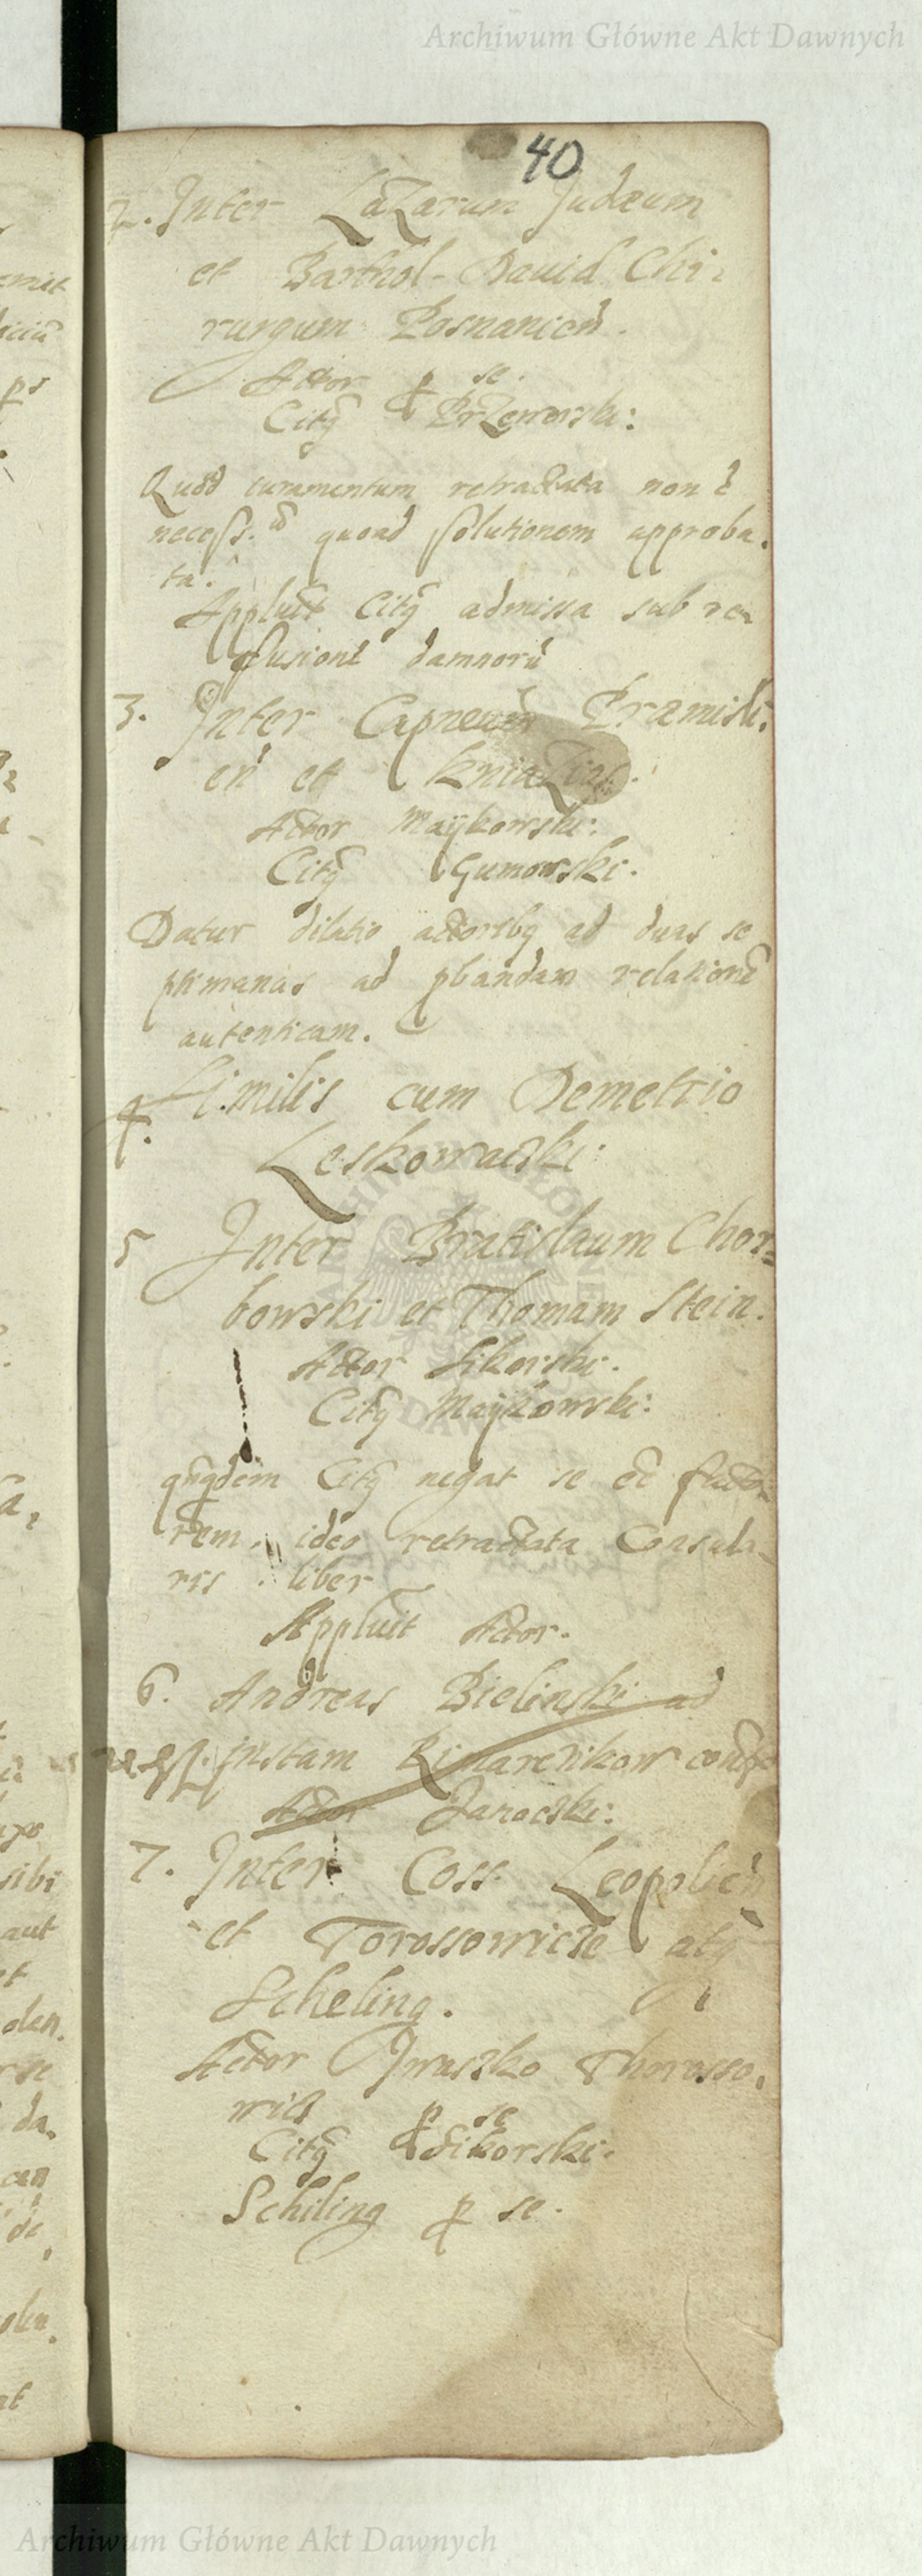 Archiwum Główne Akt Dawnych
40
2. Inter Lazarum Judæum
et Barthol- Dauid Chi-
rurgum Posnanien̄.
Actor p se.
Citꝯ Przeworski:
Quod iuramentum retractata non ē
necess: quoad solutionem approba-
ta.
Appłuit Citꝯ admissa sub re-
fusione damnorū
3. Inter Præmisli-
en̄ et
Actor Maÿkowski:
Citꝯ Gumowski.
Datur dilatio actoribꝯ ad duas se
ptimanas ad pbandam relationē
autenticam.
4. Similis cum Demetrio
Leskowacki
5 Inter Bratislaum Chor-
bowski et Thomam Stein.
Actor Sikorski.
Citꝯ Maÿkowski:
Citꝯ negat se eē facto-
rem, ideo retractata Consula-
ris liber
Appłuit Actor.
6. Andreas Bielinski ad
Janocski:
7. Inter Coss Leopolien̄
et Torossowicze atꝗ
Scheling.
Actor Iwaszko Thorosso-
wicz p se
Citꝯ Sikorski.
Schiling p se.
Archiwum Główne Akt Dawnych